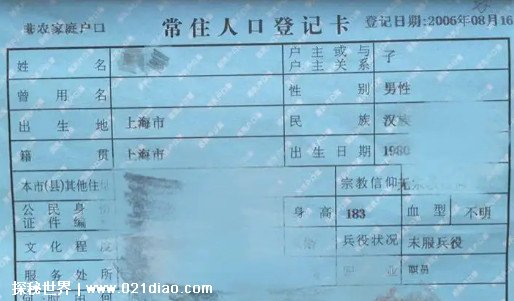 非农家庭户口 常住人口登记卡 登记日期:2006年08月16
姓名 户主或与户主关系 子
曾用名 性别 男性
出生地 上海市 民族 汉族
籍贯 上海市 出生日期 1980
本市(县)其他住 宗教信仰 无
公民身 证件编 身高 183 血型 不明
文化程度 兵役状况 未服兵役
服务处所 职业 职员
探秘世界 | www.021diao.com